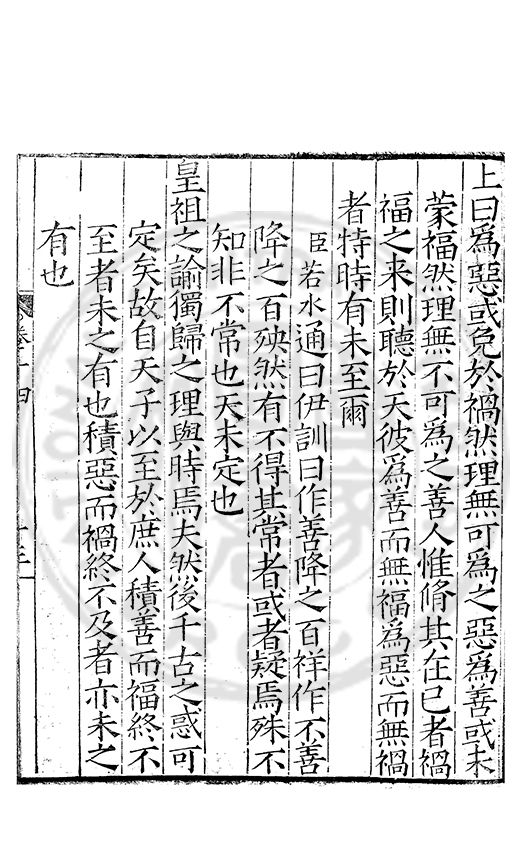 上曰爲惡或免於禍然理無可爲之惡爲善或未
蒙福然理無不可爲之善人惟脩其在已者禍
福之来則聽於天彼爲善而無福爲惡而無禍
者特時有未至爾
臣若水通曰伊訓曰作善降之百祥作不善
降之百殃然有不得其常者或者疑焉殊不
知非不常也天未定也
皇祖之諭獨歸之理與時焉夫然後千古之惑可
定矣故自天子以至於庶人積善而福終不
至者未之有也積惡而禍終不及者亦未之
有也
卷十四